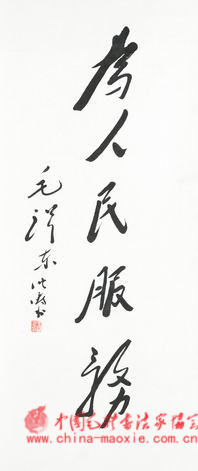 為人民服務
毛澤东
中国毛体书法家协会
www.china-maoxie.com.cn